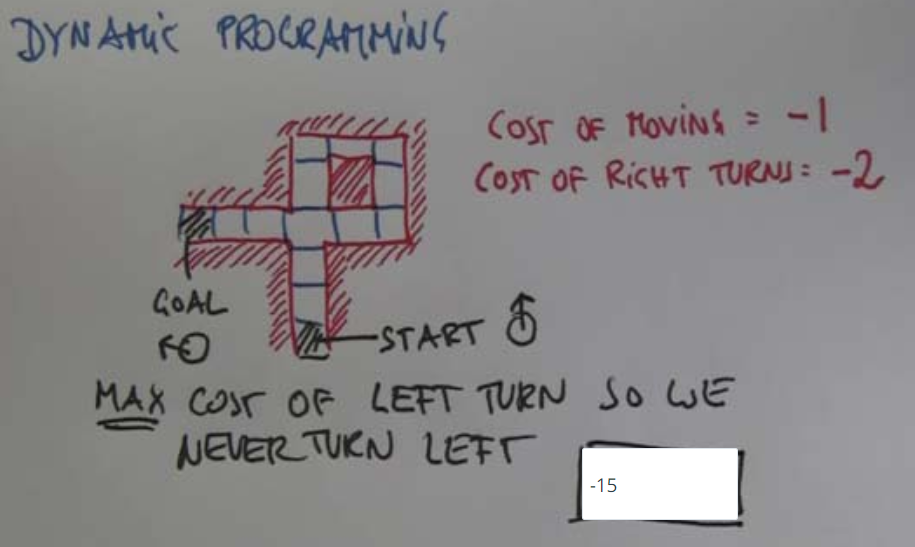 DYNAMIC PROGRAMMING
COST OF MOVING = -1
COST OF RIGHT TURNS: -2
GOAL
START
MAX COST OF LEFT TURN SO WE
NEVER TURN LEFT
-15